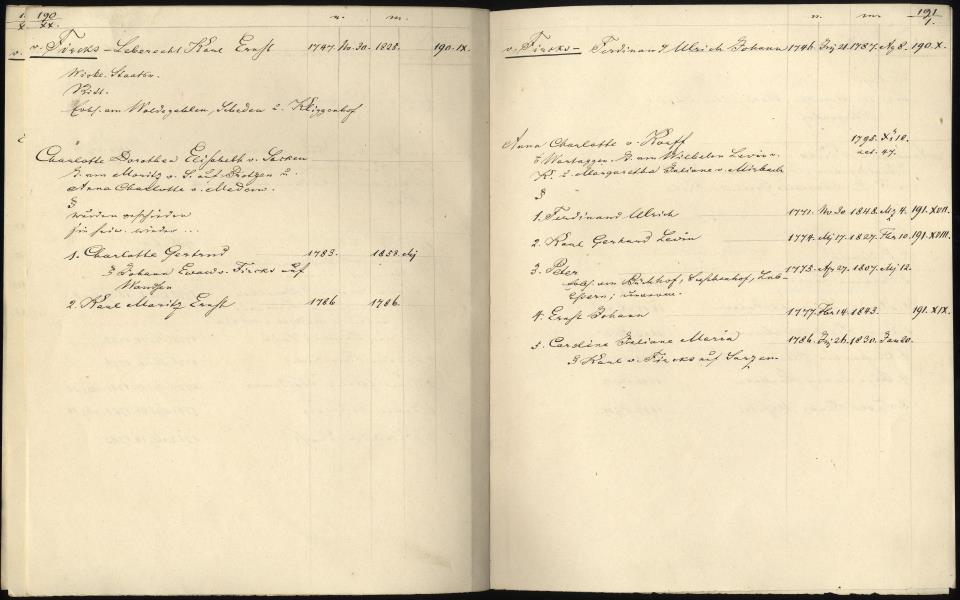 190
XX.
n. m.
v. Fircks - Leberecht Karl Ernst 1747. Nv. 30. 1828. 190. IX.
Wirkl. Staatsr.
Ritt.
Waldegahlen, Scheden u. Kliggenhof
Charlotte Dorothea Elisabeth v. Sacken
u.
Anna Charlotte v. Medem.
§
wurden geschieden
wieder ...
1. Charlotte Gertrud 1783. 1858. Mj
Johann Ewald v. Fircks auf
Wandsen
2. Karl Moritz Ernst 1786 1786.
191
1.
n. m.
v. Fircks - Ferdinand Ulrich Johann 1746. Jnj 21. 1787. Ag 8. 190. X.
Anna Charlotte v. Korff 1795. Xi 18.
aet. 47.
Wilhelm Levin v.
K. u. Margaretha Juliane v. Mirbach
§
1. Ferdinand Ulrich 1771. Nv 30 1848. Mz 4. 191. XVII.
2. Karl Gerhard Levin 1774. Mj 17. 1827. Fbr 10. 191. XVIII.
3. Peter 1775. Apr 27. 1807. Mj 12.
4. Ernst Johann 1777. Fbr 14. 1843. 191. XIX.
5. Caroline Juliane Maria 1786. Jnj 26. 1830. Jan 20.
Karl v. Fircks auf